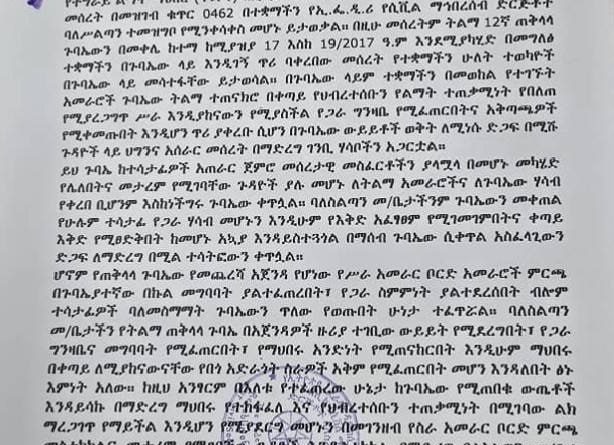 መሰረት በመዝገብ ቁጥር 0462 በተቋማችን የኢ.ፌ.ዲ.ሪ የሲቪል ማኅበረሰብ ድርጅቶች
ባለሥልጣን ተመዝግቦ የሚንቀሳቀስ መሆኑ ይታወቃል። በዚሁ መሰረትም ትልማ 12ኛ ጠቅላላ
ጉባኤውን በመቀሌ ከተማ ከሚያዝያ 17 እስከ 19/2017 ዓ.ም እንደሚያካሂድ በመግለፅ
ተቋማችን በጉባኤው ላይ እንዲገኝ ጥሪ ባቀረበው መሰረት የተቋማችን ሁለት ተወካዮች
በጉባኤው ላይ መሳተፋቸው ይታወሳል። በጉባኤው ላይም ተቋማችንን በመወከል የተገኙት
አመራሮች ጉባኤው ትልማ ተጠናክሮ በቀጣይ የህብረተሰቡን የልማት ተጠቃሚነት የበለጠ
የሚያረጋግጥ ሥራ እንዲያከናውን የሚያስችል የጋራ ግንዛቤ የሚፈጠርበትና አቅጣጫዎች
የሚቀመጡበት እንዲሆን ጥሪ ያቀረቡ ሲሆን በጉባኤው ውይይቶች ወቅት ለሚነሱ ድጋፍ በሚሹ
ጉዳዮች ላይ ህግንና አሰራር መሰረት በማድረግ ገንቢ ሃሳቦችን አጋርቷል።
ይህ ጉባኤ ከተሳታፊዎች አጠራር ጀምሮ መሰረታዊ መስፈርቶችን ያላሟላ በመሆኑ መካሄድ
የሌለበትና መታረም የሚገባቸው ጉዳዮች ያሉ መሆኑ ለትልማ አመራሮችና ለጉባኤው ሃሳብ
የቀረበ ቢሆንም እስከነችግሩ ጉባኤው ቀጥሏል። ባለስልጣን መ/ቤታችንም ጉባኤውን መቀጠል
የሁሉም ተሳታፊ የጋራ ሃሳብ መሆኑን እንዲሁም የእቅድ አፈፃፀም የሚገመገምበትና ቀጣይ
እቅድ የሚፀድቅበት ከመሆኑ አኳያ እንዳይስተጓጎል በማሰብ ጉባኤው ሲቀጥል አስፈላጊውን
ድጋፍ ለማድረግ በሚል ተሳትፎውን ቀጥሏል።
ሆኖም የጠቅላላ ጉባኤው የመጨረሻ አጀንዳ የሆነው የሥራ አመራር ቦርድ አመራሮች ምርጫ
በጉባኤተኛው በኩል መግባባት ያልተፈጠረበት፣ የጋራ ስምምነት ያልተደረሰበት ብሎም
ተሳታፊዎች ባለመስማማት ጉባኤውን ጥለው የወጡበት ሁነታ ተፈጥሯል። ባለስልጣን
መ/ቤታችን የትልማ ጠቅላላ ጉባኤው በአጀንዳዎች ዙሪያ ተገቢው ውይይት የሚደረግበት፣ የጋራ
ግንዛቤና መግባባት የሚፈጠርበት፣ የማህበሩ አንድነት የሚጠናከርበት እንዲሁም ማህበሩ
በቀጣይ ለሚያከናውናቸው የበጎ አድራጎት ስራዎች አቅም የሚፈጠርበት መሆን እንዳለበት ፅኑ
እምነት አለው። ከዚህ አንፃርም በእለቱ የተፈጠረው ሁኔታ ከጉባኤው የሚጠበቁ ውጤቶች
እንዳይሳኩ በማድረግ ማህበሩ የተከፋፈለ እና የህብረተሰቡን ተጠቃሚነት በሚገባው ልክ
ማረጋገጥ የማይችል እንዲሆን የሚያደርግ መሆኑን በመገንዘብ የስራ አመራር ቦርድ ምርጫ